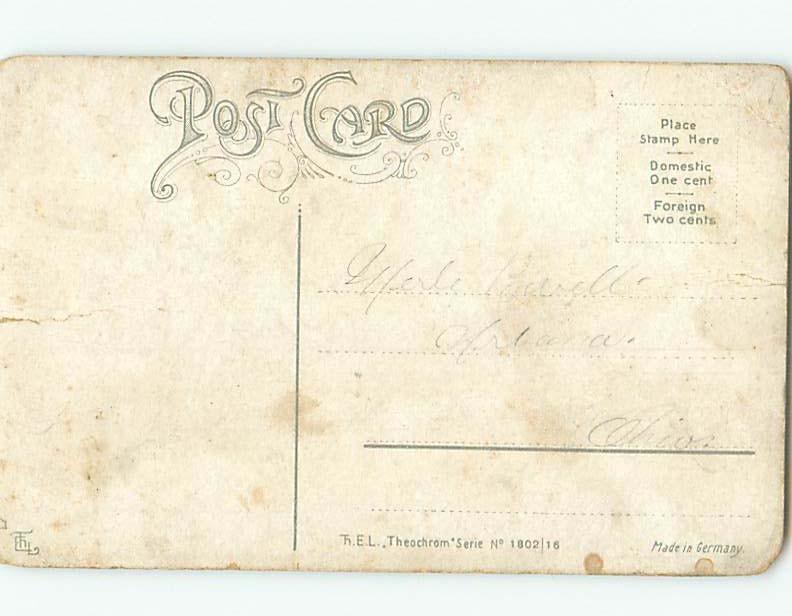 POST CARD
Place
Stamp Here
Domestic
One cent
Foreign
Two cents
Merle
Urbana.
Ohio.
Th.E.L. „Theochrom" Serie Nº 1802/16
Made in Germany.
ThEL